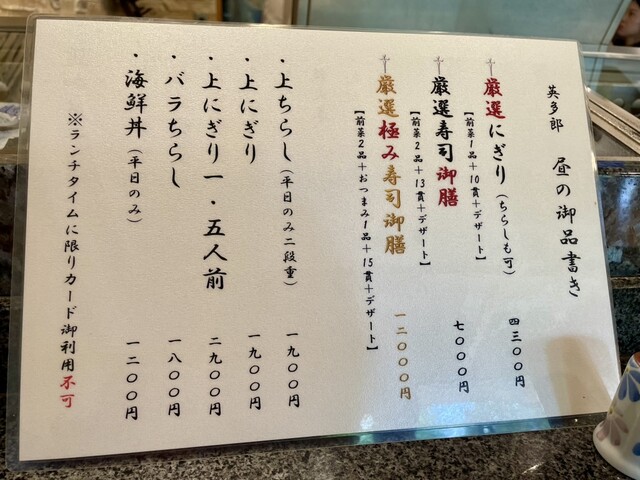 英多郎 昼の御品書き
厳選にぎり(ちらしも可) 四三〇〇円
【前菜1品+10貫+デザート】
厳選寿司御膳 七〇〇〇円
【前菜2品+13貫+デザート】
厳選極み寿司御膳 一二〇〇〇円
【前菜2品+おつまみ1品+15貫+デザート】
・上ちらし(平日のみ二段重) 一九〇〇円
・上にぎり 一九〇〇円
・上にぎり一・五人前 二九〇〇円
・バラちらし 一八〇〇円
・海鮮丼(平日のみ) 一二〇〇円
※ランチタイムに限りカード御利用不可